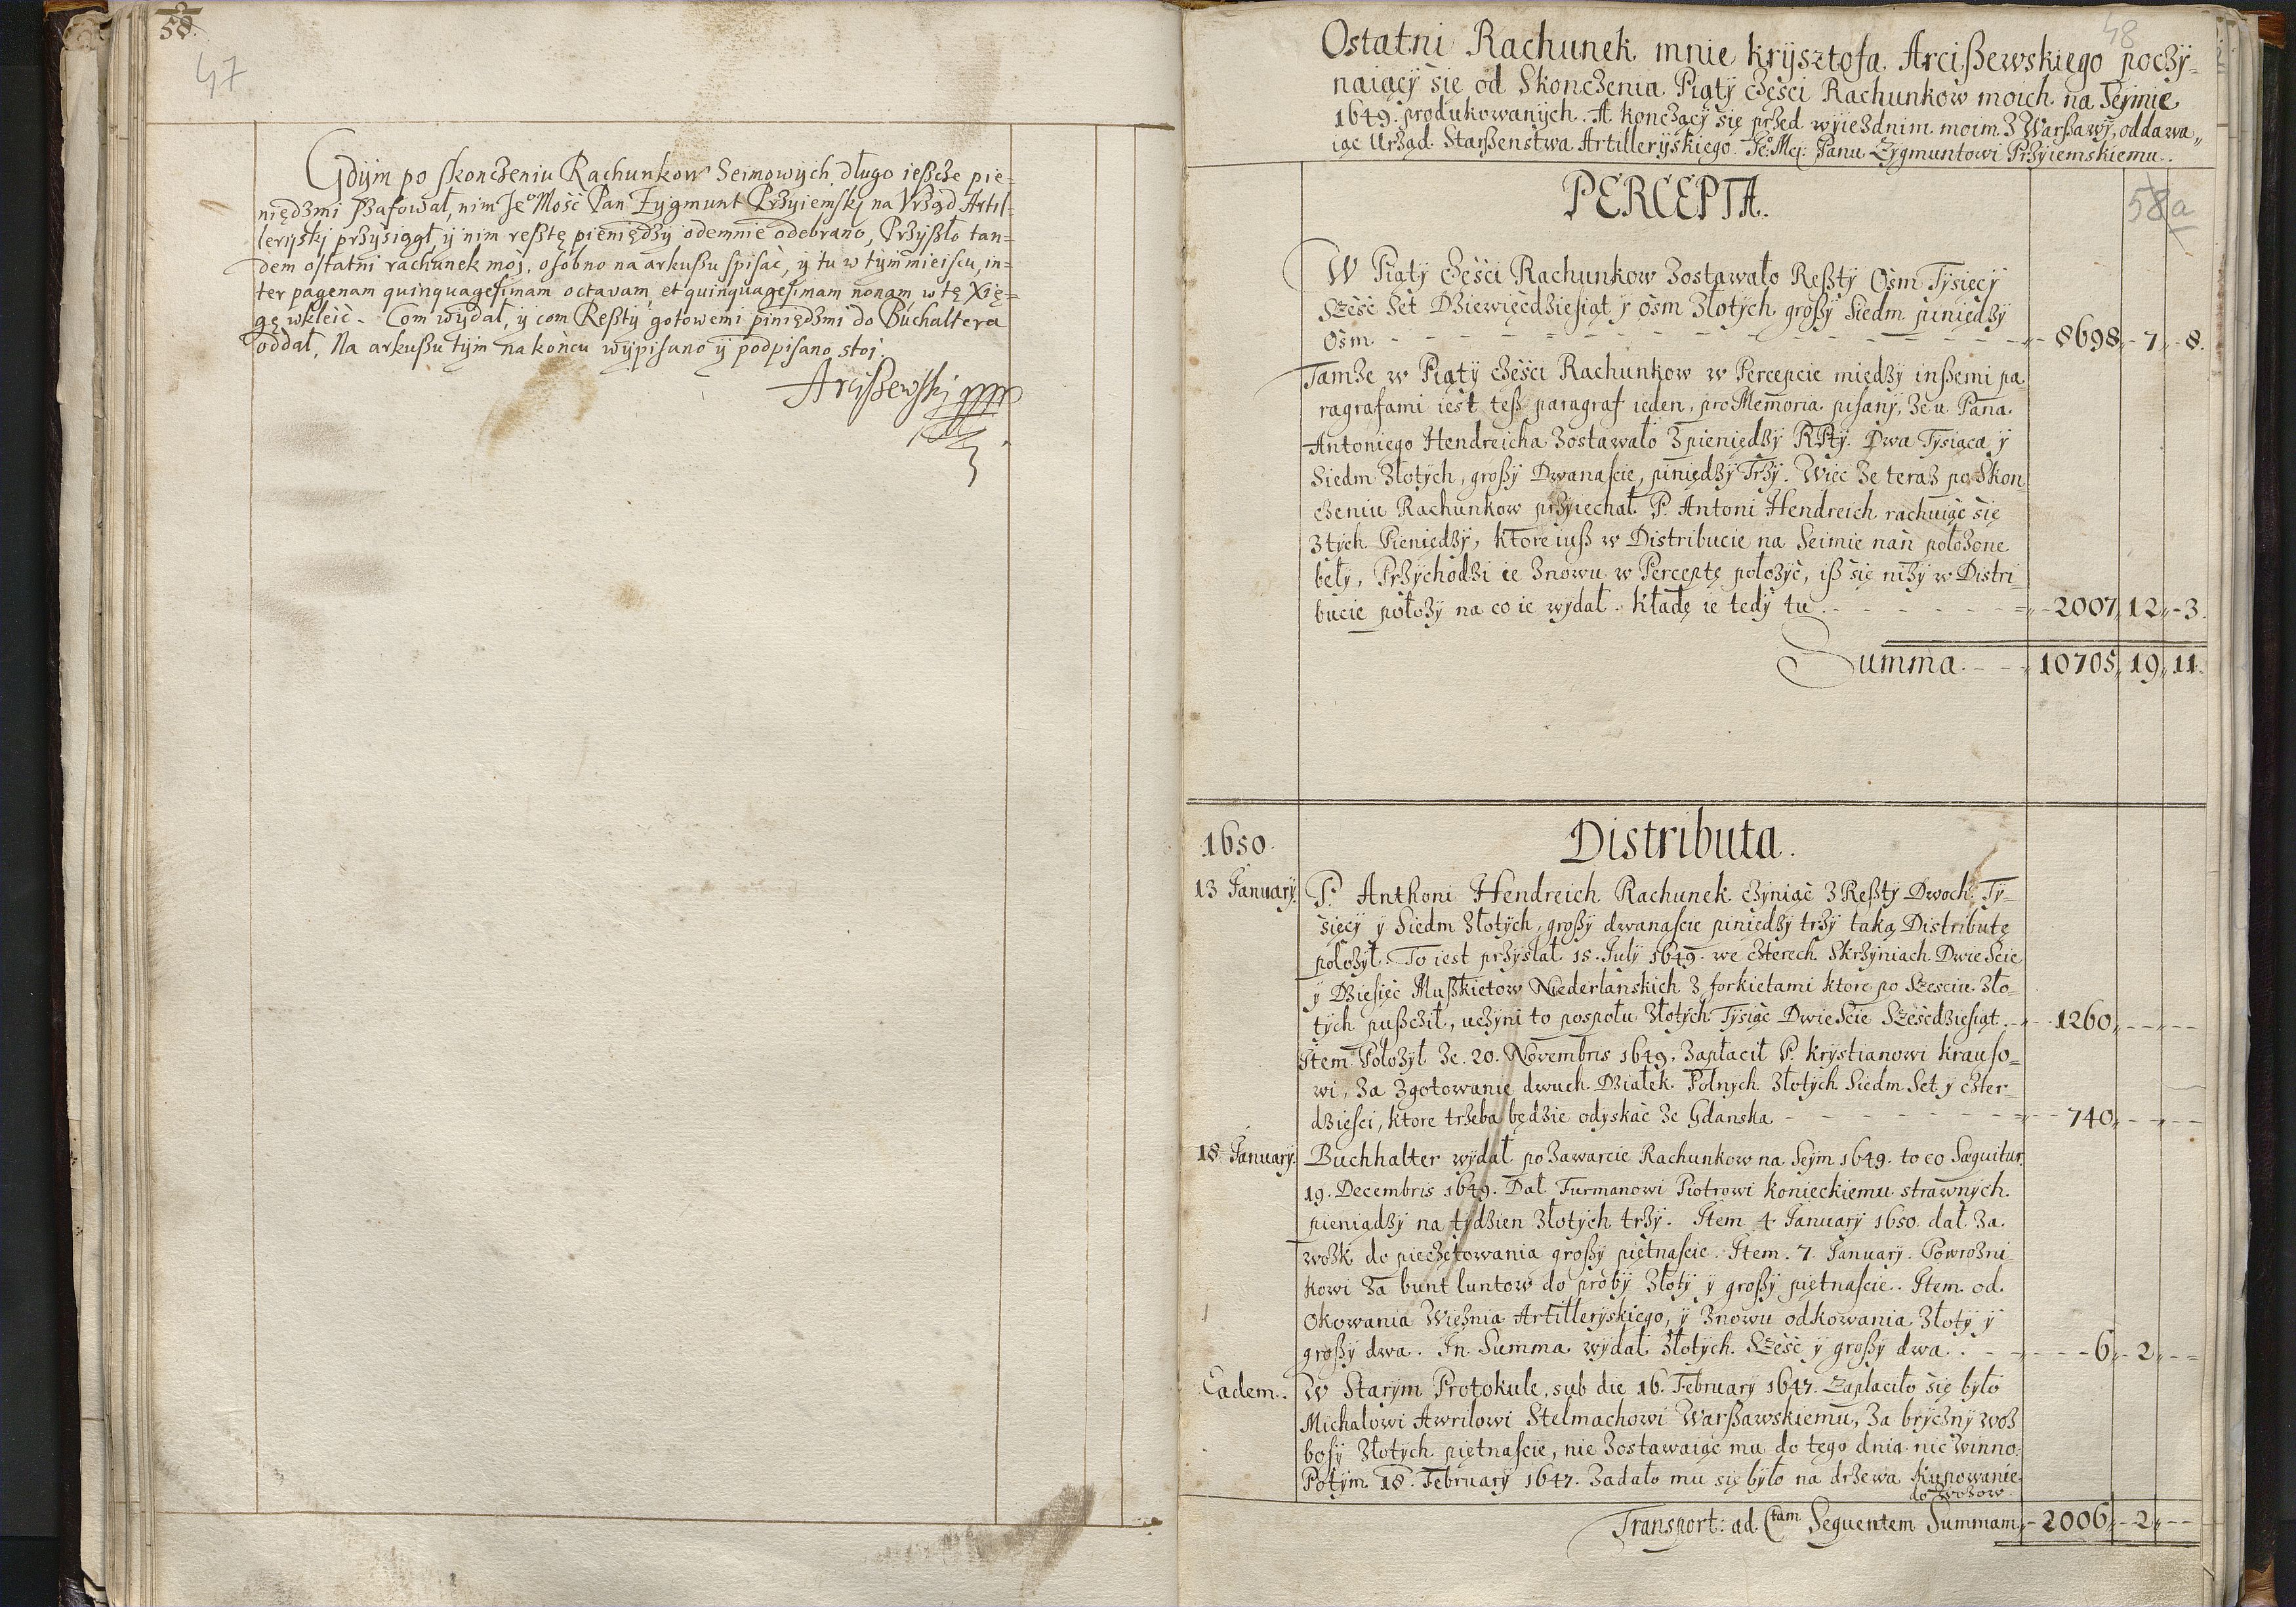 58.
47
Gdÿm po skonczeniu Rachunkow Seimowÿch, długo ießcze pie-
niędzmi ßafował, nim Jeº Mość Pan Zygmunt Przyiemskj na Vrząd Artil-
lerÿskj przÿsiągł, ÿ nim resztę pieniędzÿ odemnie odebrano, Przÿßło tan-
dem ostatni rachunek moj, osobno na arkußu spisać, ÿ tu w tÿm mieiscu, in-
ter pagenam quinquagesimam octavam, et quinquagesimam nonam, w tę Xię-
gę wkleić. Com wÿdał, ÿ com Reßtÿ gotowemi piniędzmi do Buchaltera
oddał, Na arkußu tÿm na końcu wÿpisano ÿ podpisano stoi.
Arcißewskj
48
Ostatni Rachunek mnie krÿsztofa Arcißewskiego poczÿ-
naiącÿ się od Skonczenia Piątÿ części Rachunkow moich na Seÿmie
1649. produkowanÿch. A konczącÿ się przed wÿiezdnim moim z Warßawÿ, oddawa-
iąc Urząd Starßenstwa Artillerÿskiego Jeº Mci Panu Zygmuntowi Przÿiemskiemu.
PERCEPTA.
58a
W Piątÿ części Rachunkow zostawało Reßtÿ Osm Tÿsięcÿ
Sześć Set Dziewięcdziesiąt ÿ osm złotÿch großÿ Siedm piniędzÿ
osm. - - - 8698,, 7,, 8.
Tamze w Piątÿ części Rachunkow w Percepcie międzÿ inßemi pa-
ragrafami iest teß paragraf ieden, pro Memoria pisanÿ, ze u Pana
Antoniego Hendreicha zostawało z pieniędzÿ RPtÿ. Dwa Tÿsiąca ÿ
Siedm złotÿch, großÿ Dwanaście, piniędzÿ Trzÿ. Więc ze teraz po Skon-
czeniu Rachunkow przÿiechał P. Antoni Hendreich rachuiąc się
z tÿch Pieniędzÿ, ktore iuß w Distribucie na Seimie nań położone
bełÿ, Przÿchodzi ie znowu w Perceptę położÿć, iß się niżÿ w Distri-
bucie położÿ na co ie wÿdał. kładę ie tedÿ tu - - - 2007,, 12,, 3.
Summa - - - 10705,, 19,, 11.
1650. Distributa.
13 Januarÿ. P. Anthoni Hendreich Rachunek czÿniąc z Reßtÿ Dwoch Tÿ-
sięcÿ ÿ Siedm złotÿch, großÿ dwanaście piniędzÿ trzÿ taką Distributę
położÿł. To iest przÿsłał 15. Julÿ 1649. we czterech Skrzÿniach Dwie Scie
ÿ Dziesięć Mußkietow Niederlanskich z forkietami ktore po Sześciu zło-
tÿch pußcził, uczÿni to pospołu złotÿch Tÿsiąc Dwie Scie Sześcdziesiąt - 1260,, - -
Item Położÿł ze 20. Novembris 1649. zapłacił P. Krÿstianowi Krauso-
wi, za zgotowanie dwuch Działek Polnÿch złotÿch Siedm Set ÿ czter-
dziesci, ktore trzeba będzie odÿskać ze Gdanska - - - 740,, - -
18 Januarÿ. Buchhalter wÿdał po zawarcie Rachunkow na Seÿm 1649. to co Sæquitur.
19. Decembris 1649. Dał Furmanowi Piotrowi Konieckiemu strawnÿch
pieniądzÿ na tÿdzien złotÿch trzÿ. Item 4 Januarÿ 1650. dał za
wozk do pieczętowania großÿ piętnaście. Item. 7. Januarÿ. Powrozni-
kowi za bunt luntow do probÿ złotÿ ÿ großÿ piętnaście. Item od
Okowania Więźnia Artillerÿskiego, ÿ znowu odkowania złotÿ ÿ
großÿ dwa. In Summa wÿdał złotÿch Sześć ÿ großÿ dwa. - - - 6,, 2,, -
Eadem. W Starÿm Protokule, sub die 16. Februarÿ 1647. zapłaciło się bÿło
Michałowi Awrilowi Stelmachowi Warßawskiemu, za brÿcznÿ woz
bosÿ złotÿch piętnaście, nie zostawaiąc mu do tego dnia nic winno.
Potÿm 18. Februarÿ 1647. zadało mu się bÿło na drzewa kupowanie
do wozow
Transport: ad Ctam Sequentem Summam,, 2006,, 2,, -